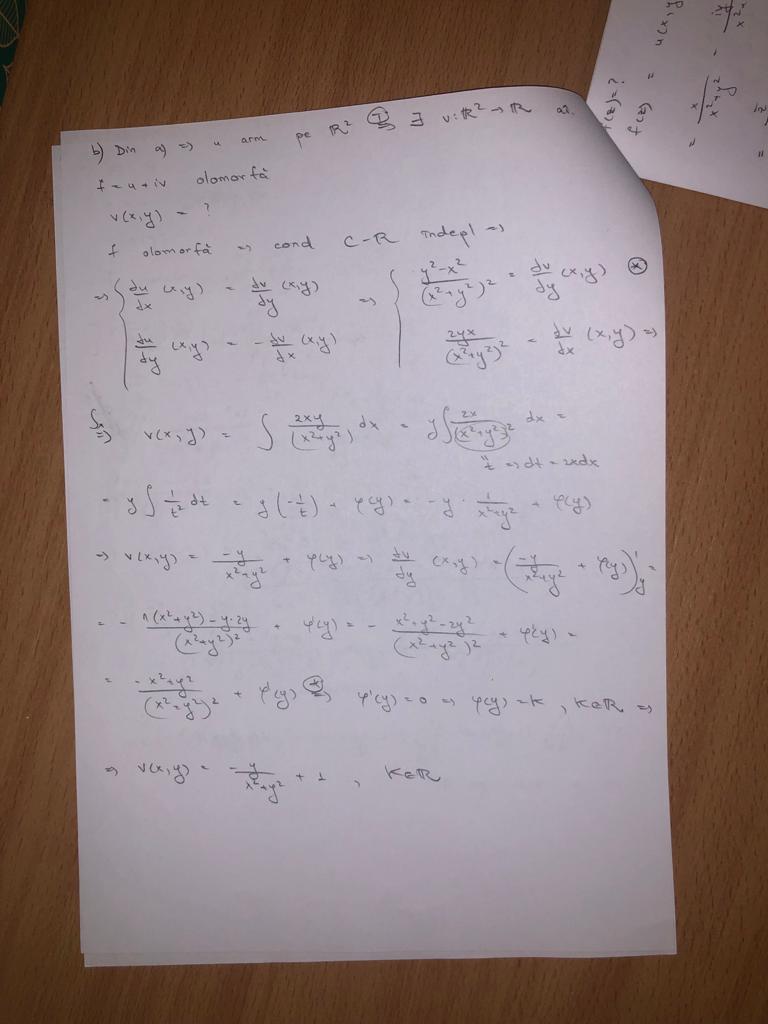 b) Din a) => u arm pe ℝ² (T)=> ∃ v:ℝ²→ℝ aî.
f = u + iv olomorfă
v(x,y) = ?
f olomorfă => cond C-R îndepl =>
=> { du/dx (x,y) = dv/dy (x,y) => { (y²-x²)/(x²+y²)² = dv/dy (x,y) (*)
du/dy (x,y) = - dv/dx (x,y) 2yx/(x²+y²)² = dv/dx (x,y) =>
∫=> v(x,y) = ∫ 2xy/(x²+y²) dx = y∫ 2x/(x²+y²)² dx =
"t => dt = 2xdx
= y ∫ 1/t² dt = y (-1/t) + φ(y) = -y · 1/(x²+y²) + φ(y)
=> v(x,y) = -y/(x²+y²) + φ(y) => dv/dy (x,y) = (-y/(x²+y²) + φ(y))'y =
= - (1(x²+y²) - y·2y)/(x²+y²)² + φ'(y) = - (x²+y²-2y²)/(x²+y²)² + φ'(y) =
= (-x²+y²)/(x²+y²)² + φ'(y) (*)=> φ'(y) = 0 => φ(y) = K , K∈ℝ =>
=> v(x,y) = -y/(x²+y²) + 1 , K∈ℝ
f(z) = ?
f(z) = u(x,y
= x/(x²+y²) - iy/x²+
=